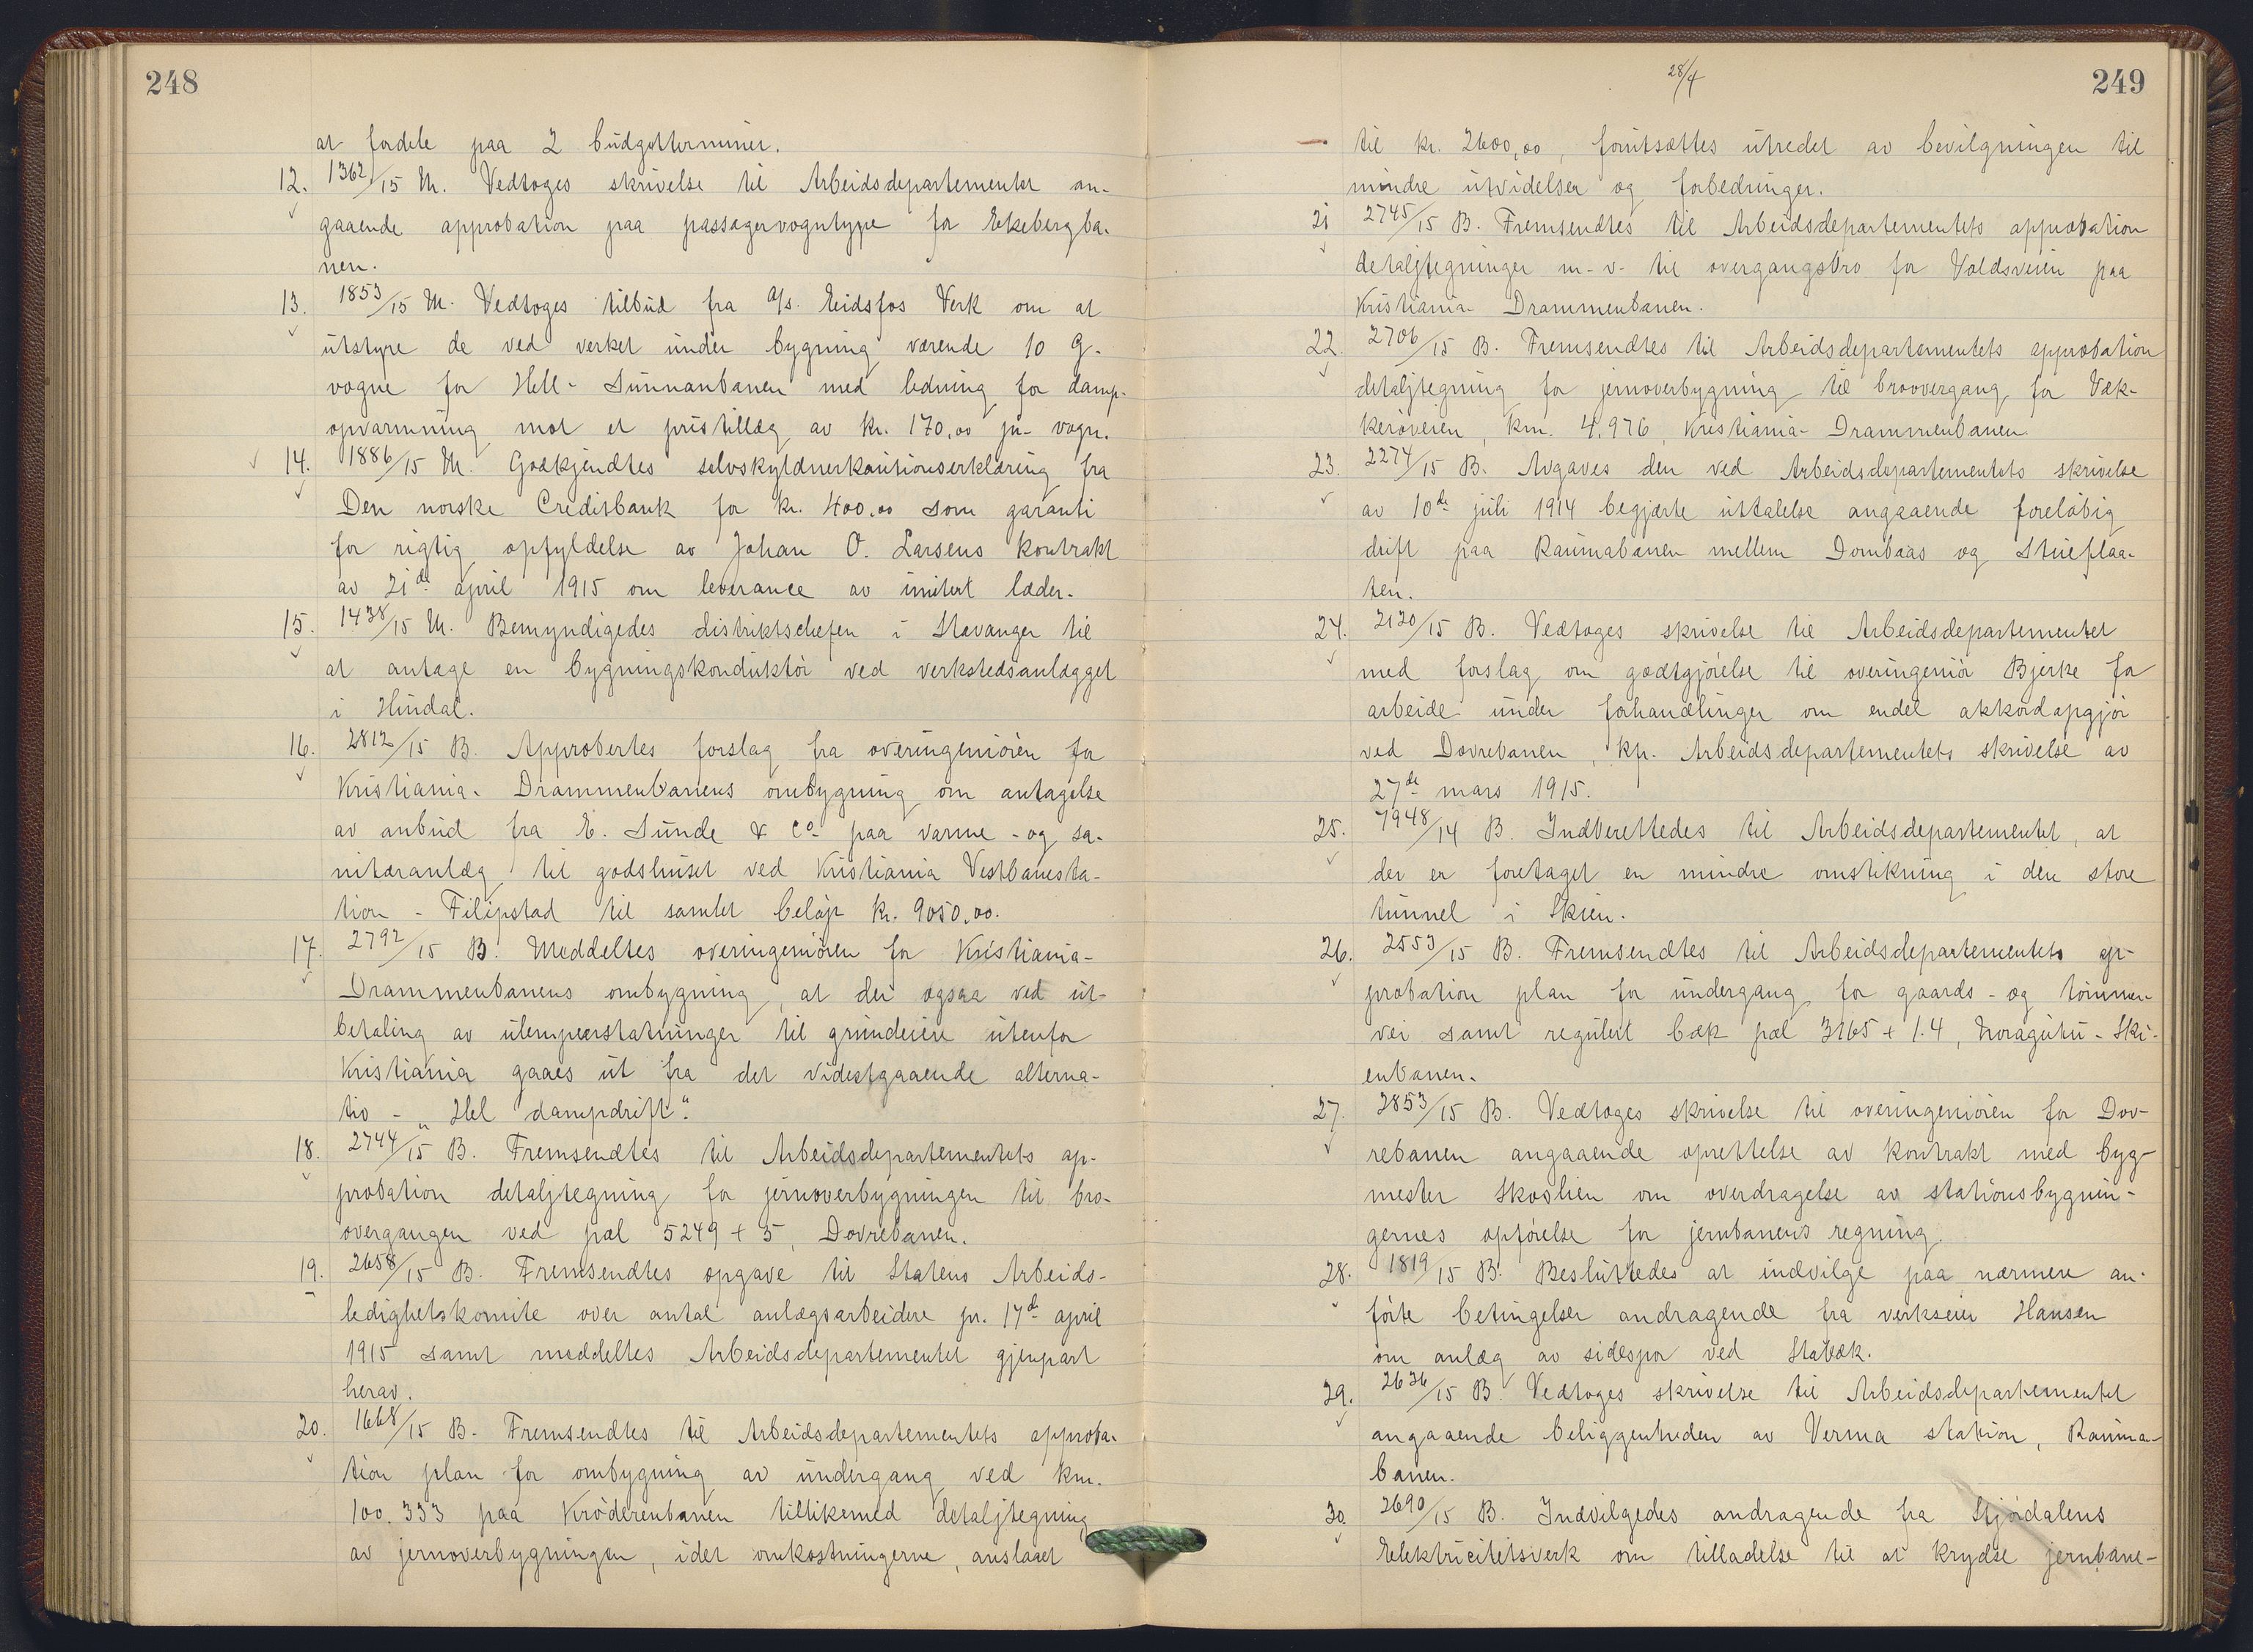 248
at fordele paa 2 budgetterminer.
12. 1362/15 M. Vedtoges skrivelse til Arbeidsdepartementet an-
gaaende approbation paa passagervogntype for Ekebergba-
nen.
13. 1853/15 M. Vedtoges tilbud fra A/s. Eidsfos Verk om at
utstyre de ved verket under bygning værende 10 G-
vogne for Hell-Sunnanbanen med ledning for damp-
opvarmning mot et pristillæg av kr. 170,00 pr. vogn.
14. 1886/15 M. Godkjendtes selvskyldnerkautionserklæring fra
Den norske Creditbank for kr. 400,00 som garanti
for rigtig opfyldelse av Johan O. Larsens kontrakt
av 21de april 1915 om leverance av imitert læder.
15. 1438/15 M. Bemyndigedes distriktschefen i Stavanger til
at antage en bygningskonduktør ved verkstedsanlægget
i Hindal.
16. 2812/15 B. Approbertes forslag fra overingeniøren for
Kristiania-Drammenbanens ombygning om antagelse
av anbud fra E. Sunde & Co paa varme- og sa-
nitæranlæg til godshuset ved Kristiania Vestbanesta-
tion - Filipstad til samlet beløp kr. 9050,00.
17. 2792/15 B. Meddeltes overingeniøren for Kristiania-
Drammenbanens ombygning, at der ogsaa ved ut-
betaling av ulempeerstatninger til grundeiere utenfor
Kristiania gaaes ut fra det videstgaaende alterna-
tiv - "Hel dampdrift".
18. 2744/15 B. Fremsendtes til Arbeidsdepartementets ap-
probation detaljtegning for jernoverbygningen til bro-
overgangen ved pæl 5249 + 5, Dovrebanen.
19. 2658/15 B. Fremsendtes opgave til Statens Arbeids-
ledighetskomite over antal anlægsarbeidere pr. 17de april
1915 samt meddeltes Arbeidsdepartementet gjenpart
herav.
20. 1668/15 B. Fremsendtes til Arbeidsdepartementets approba-
tion plan for ombygning av undergang ved km.
100.333 paa Krøderenbanen tillikemed detaljtegning
av jernoverbygningen, idet omkostningerne, anslaaet
28/4
249
til kr. 2600,00, forutsættes utredet av bevilgningen til
mindre utvidelser og forbedringer.
21 2745/15 B. Fremsendtes til Arbeidsdepartementets approbation
detaljtegninger m.v. til overgangsbro for Voldsveien paa
Kristiania-Drammenbanen.
22. 2706/15 B. Fremsendtes til Arbeidsdepartementets approbation
detaljtegning for jernoverbygning til broovergang for Væk-
kerøveien, km. 4.976, Kristiania-Drammenbanen
23. 2274/15 B. Avgaves den ved Arbeidsdepartementets skrivelse
av 10de juli 1914 begjærte uttalelse angaaende foreløbig
drift paa Raumabanen mellem Dombaas og Stueflaa-
ten.
24. 2120/15 B. Vedtoges skrivelse til Arbeidsdepartementet
med forslag om godtgjørelse til overingeniør Bjerke for
arbeide under forhandlinger om endel akkordopgjør
ved Dovrebanen, kfr. Arbeidsdepartementets skrivelse av
27de mars 1915.
25. 7948/14 B. Indberettedes til Arbeidsdepartementet, at
der er foretaget en mindre omstikning i den store
tunnel i Skien.
26. 2553/15 B. Fremsendtes til Arbeidsdepartementets ap-
probation plan for undergang for gaards- og tømmer-
vei samt regulert bæk pæl 3165 + 1.4, Noragutu-Ski-
enbanen.
27. 2853/15 B. Vedtoges skrivelse til overingeniøren for Dov-
rebanen angaaende oprettelse av kontrakt med byg-
mester Skoslien om overdragelse av stationsbygnin-
gernes opførelse for jernbanens regning.
28. 1819/15 B. Besluttedes at indvilge paa nærmere an-
førte betingelser andragende fra verkseier Hansen
om anlæg av sidespor ved Stabæk.
29. 2636/15 B. Vedtoges skrivelse til Arbeidsdepartementet
angaaende beliggenheden av Verma station, Rauma-
banen.
30. 2690/15 B. Indvilgedes andragende fra Stjørdalens
Elektricitetsverk om tilladelse til at krydse jernbane-